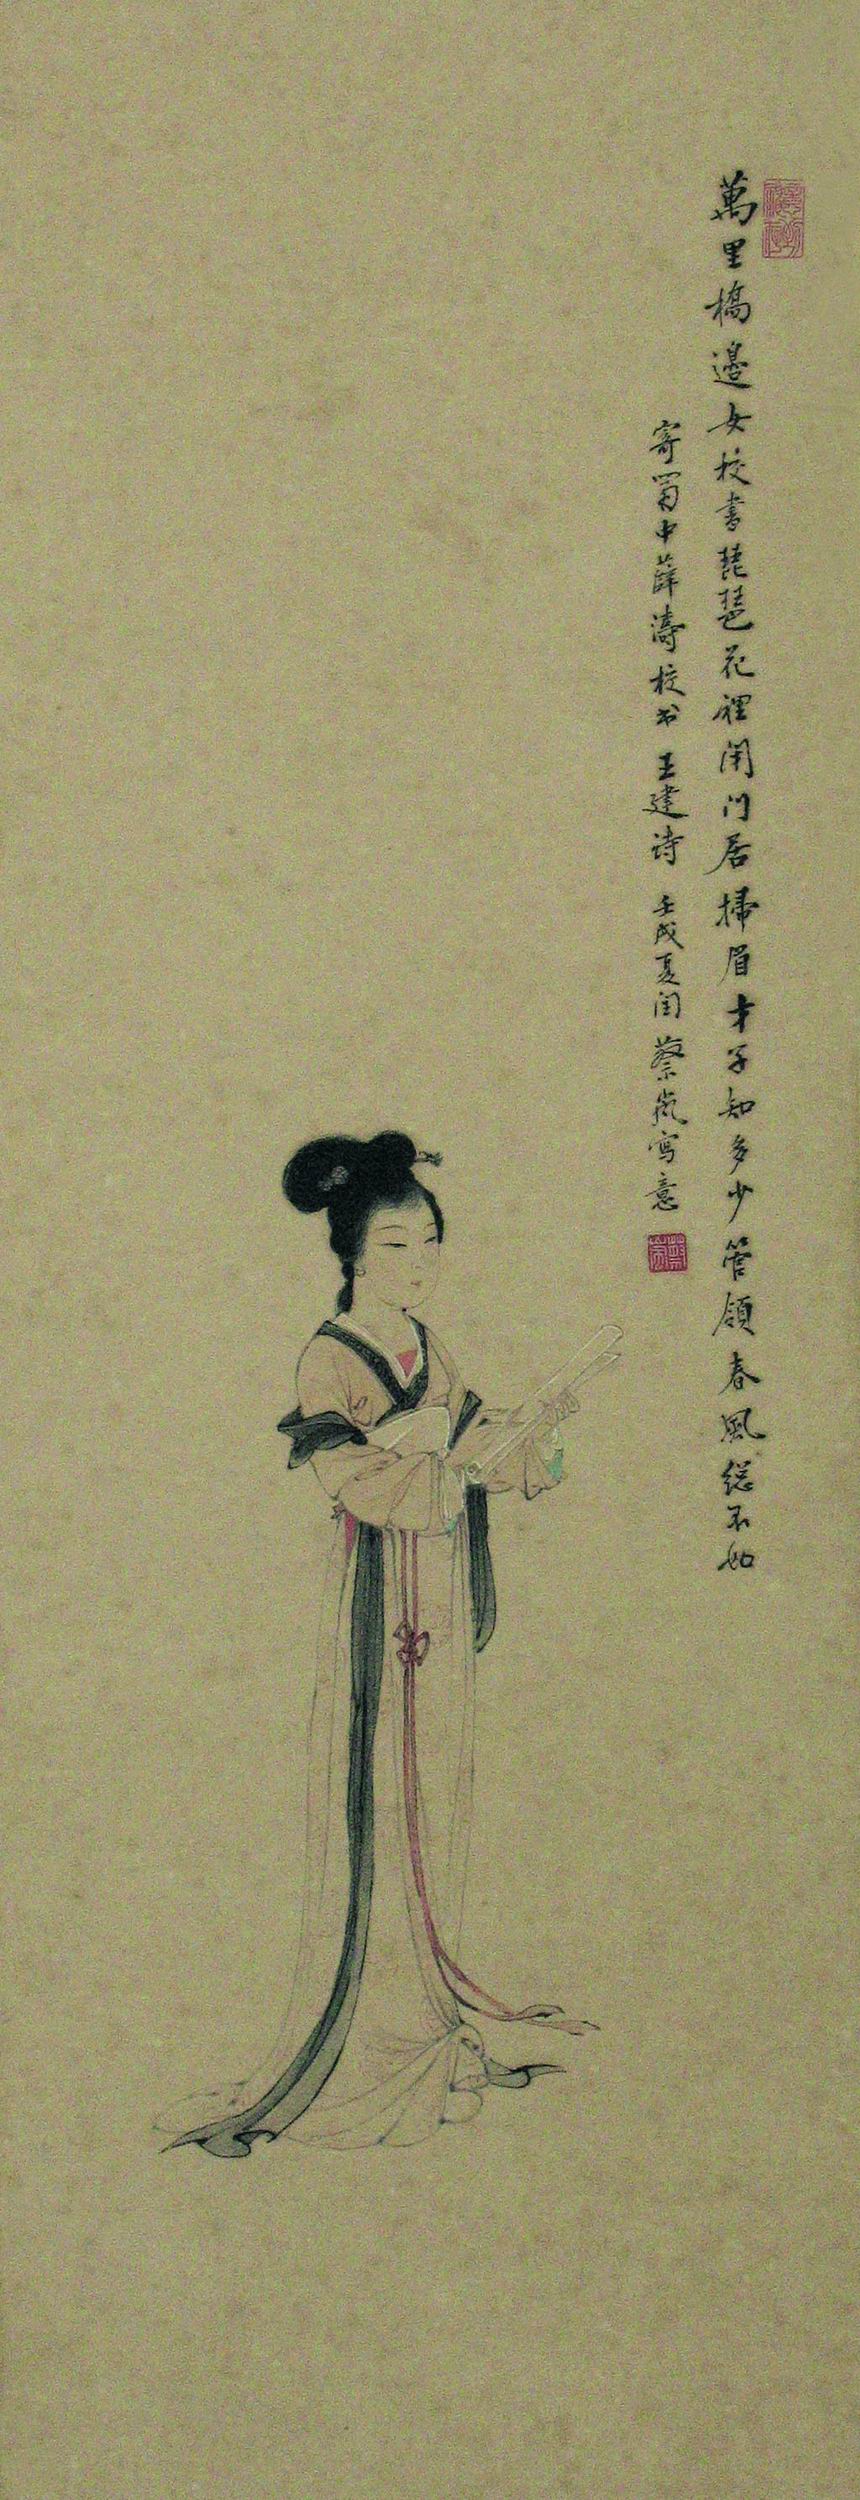 萬里橋邊女校書琵琶花裡閉门居掃眉才子知多少管領春風總不如
寄蜀中薛濤校书 王建诗 壬戌夏闰 蔡岚寫意